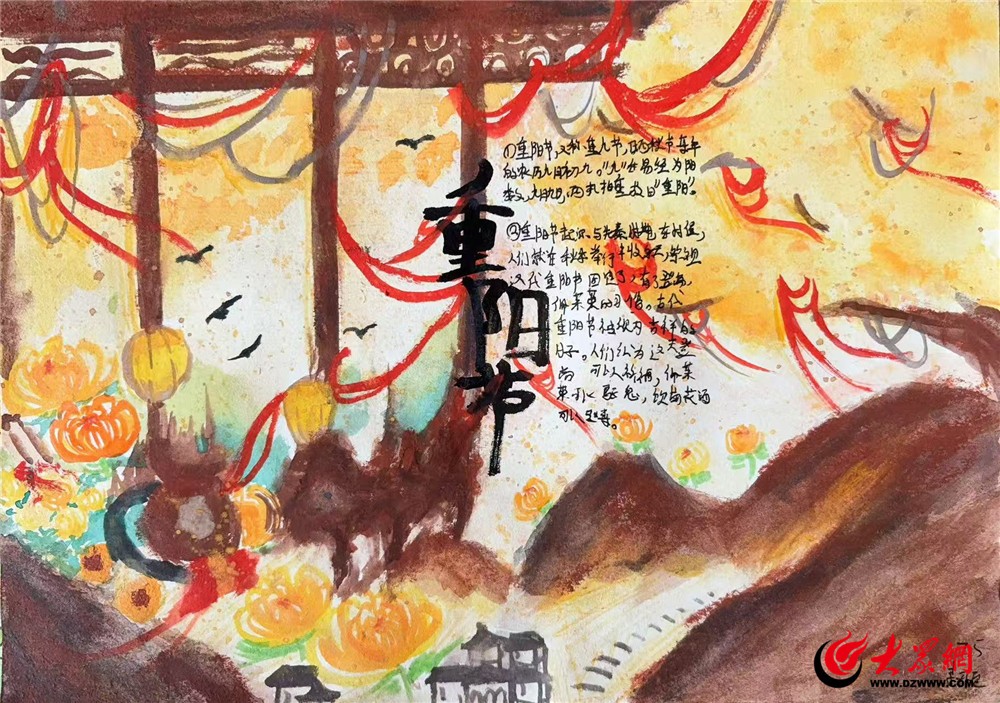 重阳节
①重阳节,又称重九节,日在秋节每年
的农历九月初九。"九"在易经为阳
数,九月九日,两九相重故曰"重阳"。
②重阳节起源,与先秦时期,在时候,
人们就在秋季举行丰收祭天,祭祖
汉代重阳节固定了,有了登高,
佩茱萸的习俗。古代
重阳节被认为吉祥的
日子。人们认为这天登
高 可以人 佩茱
萸可以驱鬼,饮菊花酒
可以 寿。
大众網
WWW.DZWWW.COM